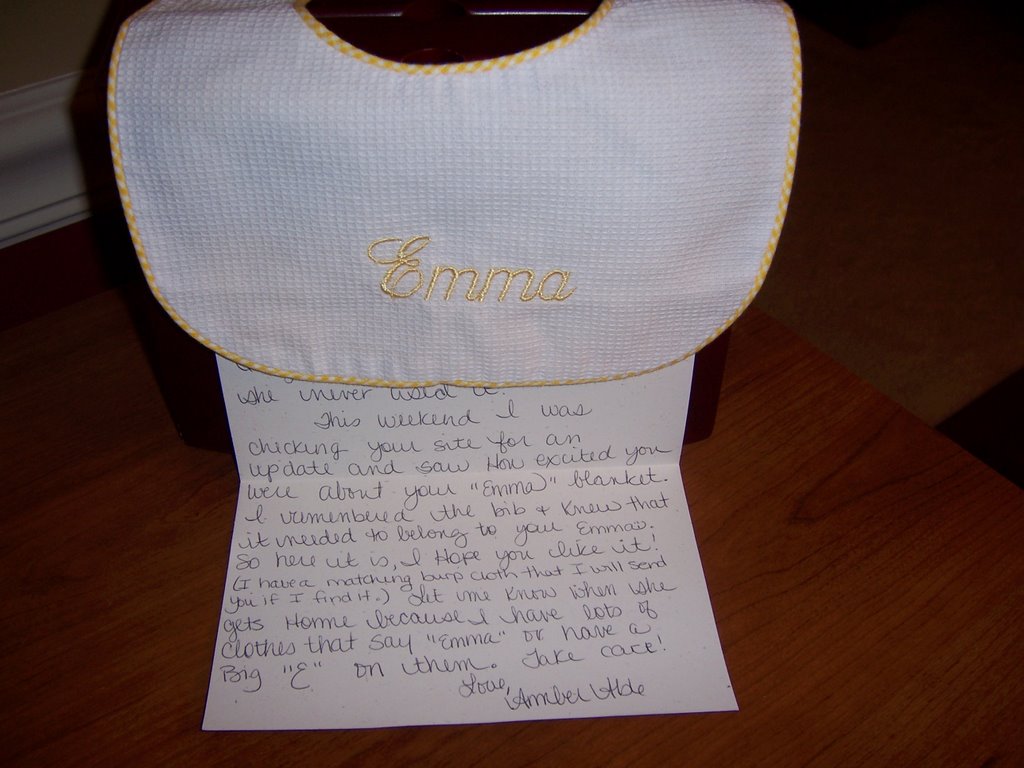 Emma
she never used it.
This weekend I was
chicking your site for an
update and saw How excited you
were about your "Emma" blanket.
I remembered the bib & knew that
it needed to belong to your Emma.
So here it is, I Hope you like it!
(I have a matching burp cloth that I will send
you if I find it.) Let me know when she
gets Home because I have lots of
clothes that say "Emma" or have a
Big "E" on them. Take care!
Love,
Amber